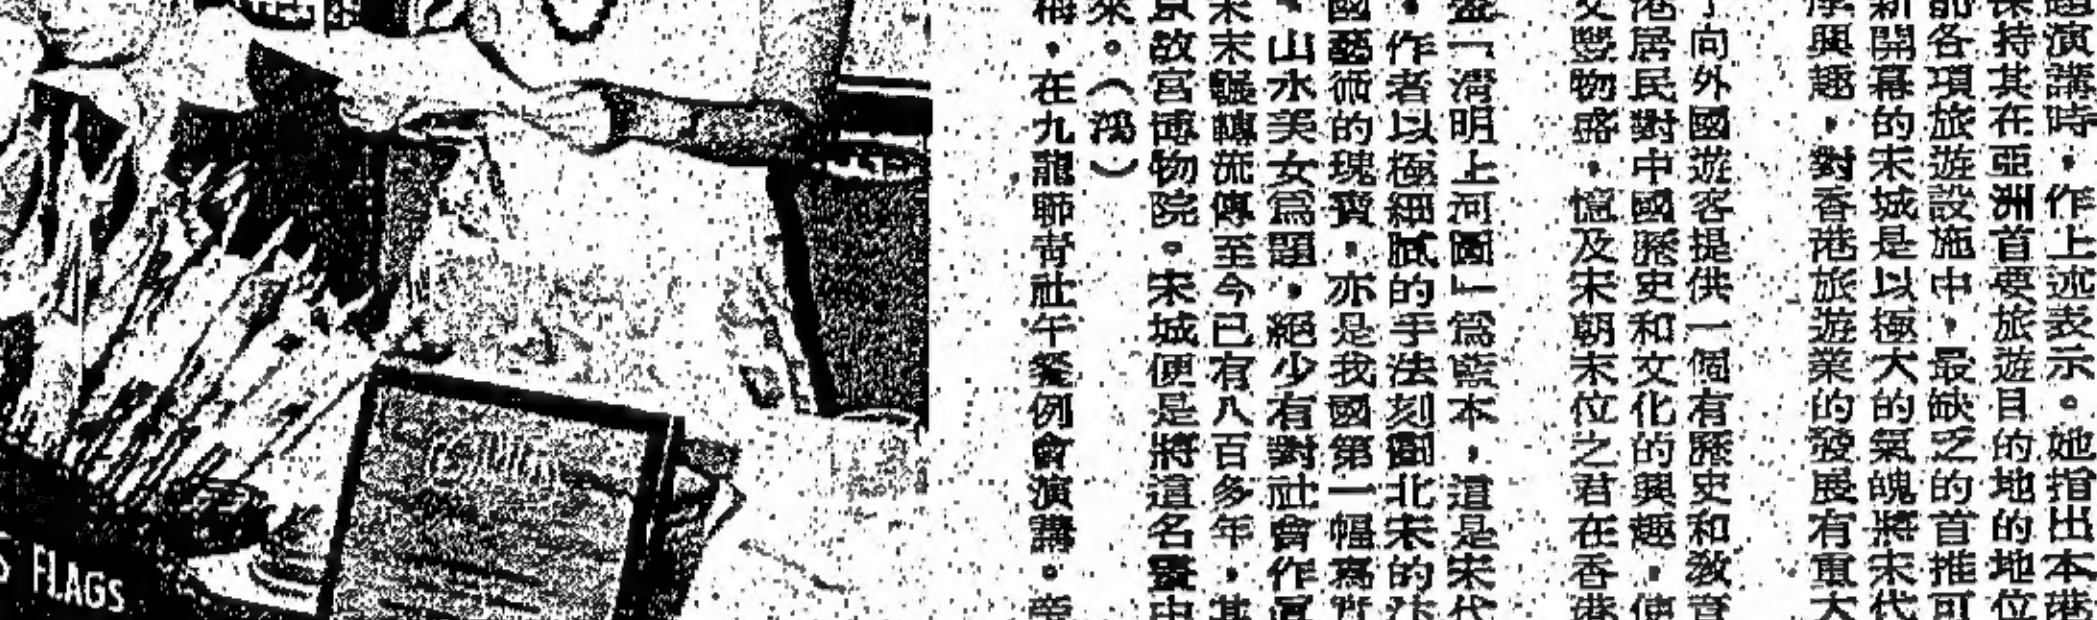 演講時，作上述表示。她指出本港
保持其在亞洲首要旅遊目的地的地位
各項旅遊設施中，最缺乏的首推可
新開幕的宋城是以極大的氣魄將宋代
興趣，對香港旅遊業的發展有重大
向外國遊客提供一個有歷史和教育
港居民對中國歷史和文化的興趣，使
文豐物盛，憶及宋朝末位之君在香港
「清明上河圖」為藍本，這是宋代
，作者以極細膩的手法刻劃北宋的汴
國藝術的瑰寶，亦是我國第一幅寫實
，山水美女為題，絕少有對社會作真
宋末輾轉流傳至今已有八百多年，其
京故宮博物院。宋城便是將這名畫由
來。（鴻）
稱，在九龍聯青社午餐例會演講。
S FLAGS